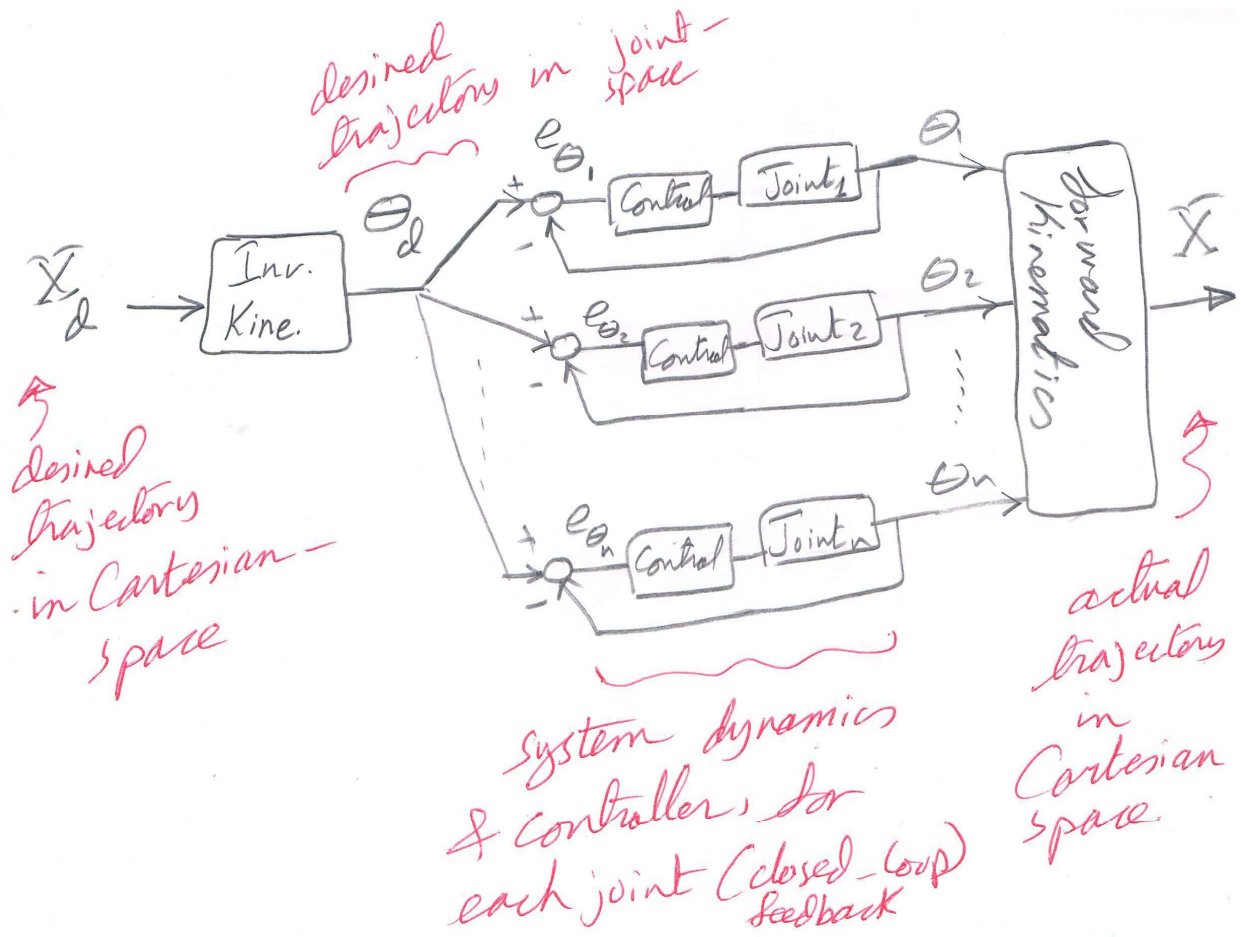 desired
trajectory in joint-
space
X_d
Inv.
Kine.
θ_d
+
-
e_θ₁
Control
Joint1
θ₁
+
-
e_θ₂
Control
Joint2
θ2
+
-
e_θn
Control
Joint n
θn
forward
kinematics
X
desired
trajectory
in Cartesian-
space
system dynamics
& controller, for
each joint (closed-loop)
feedback
actual
trajectory
in
Cartesian
space.